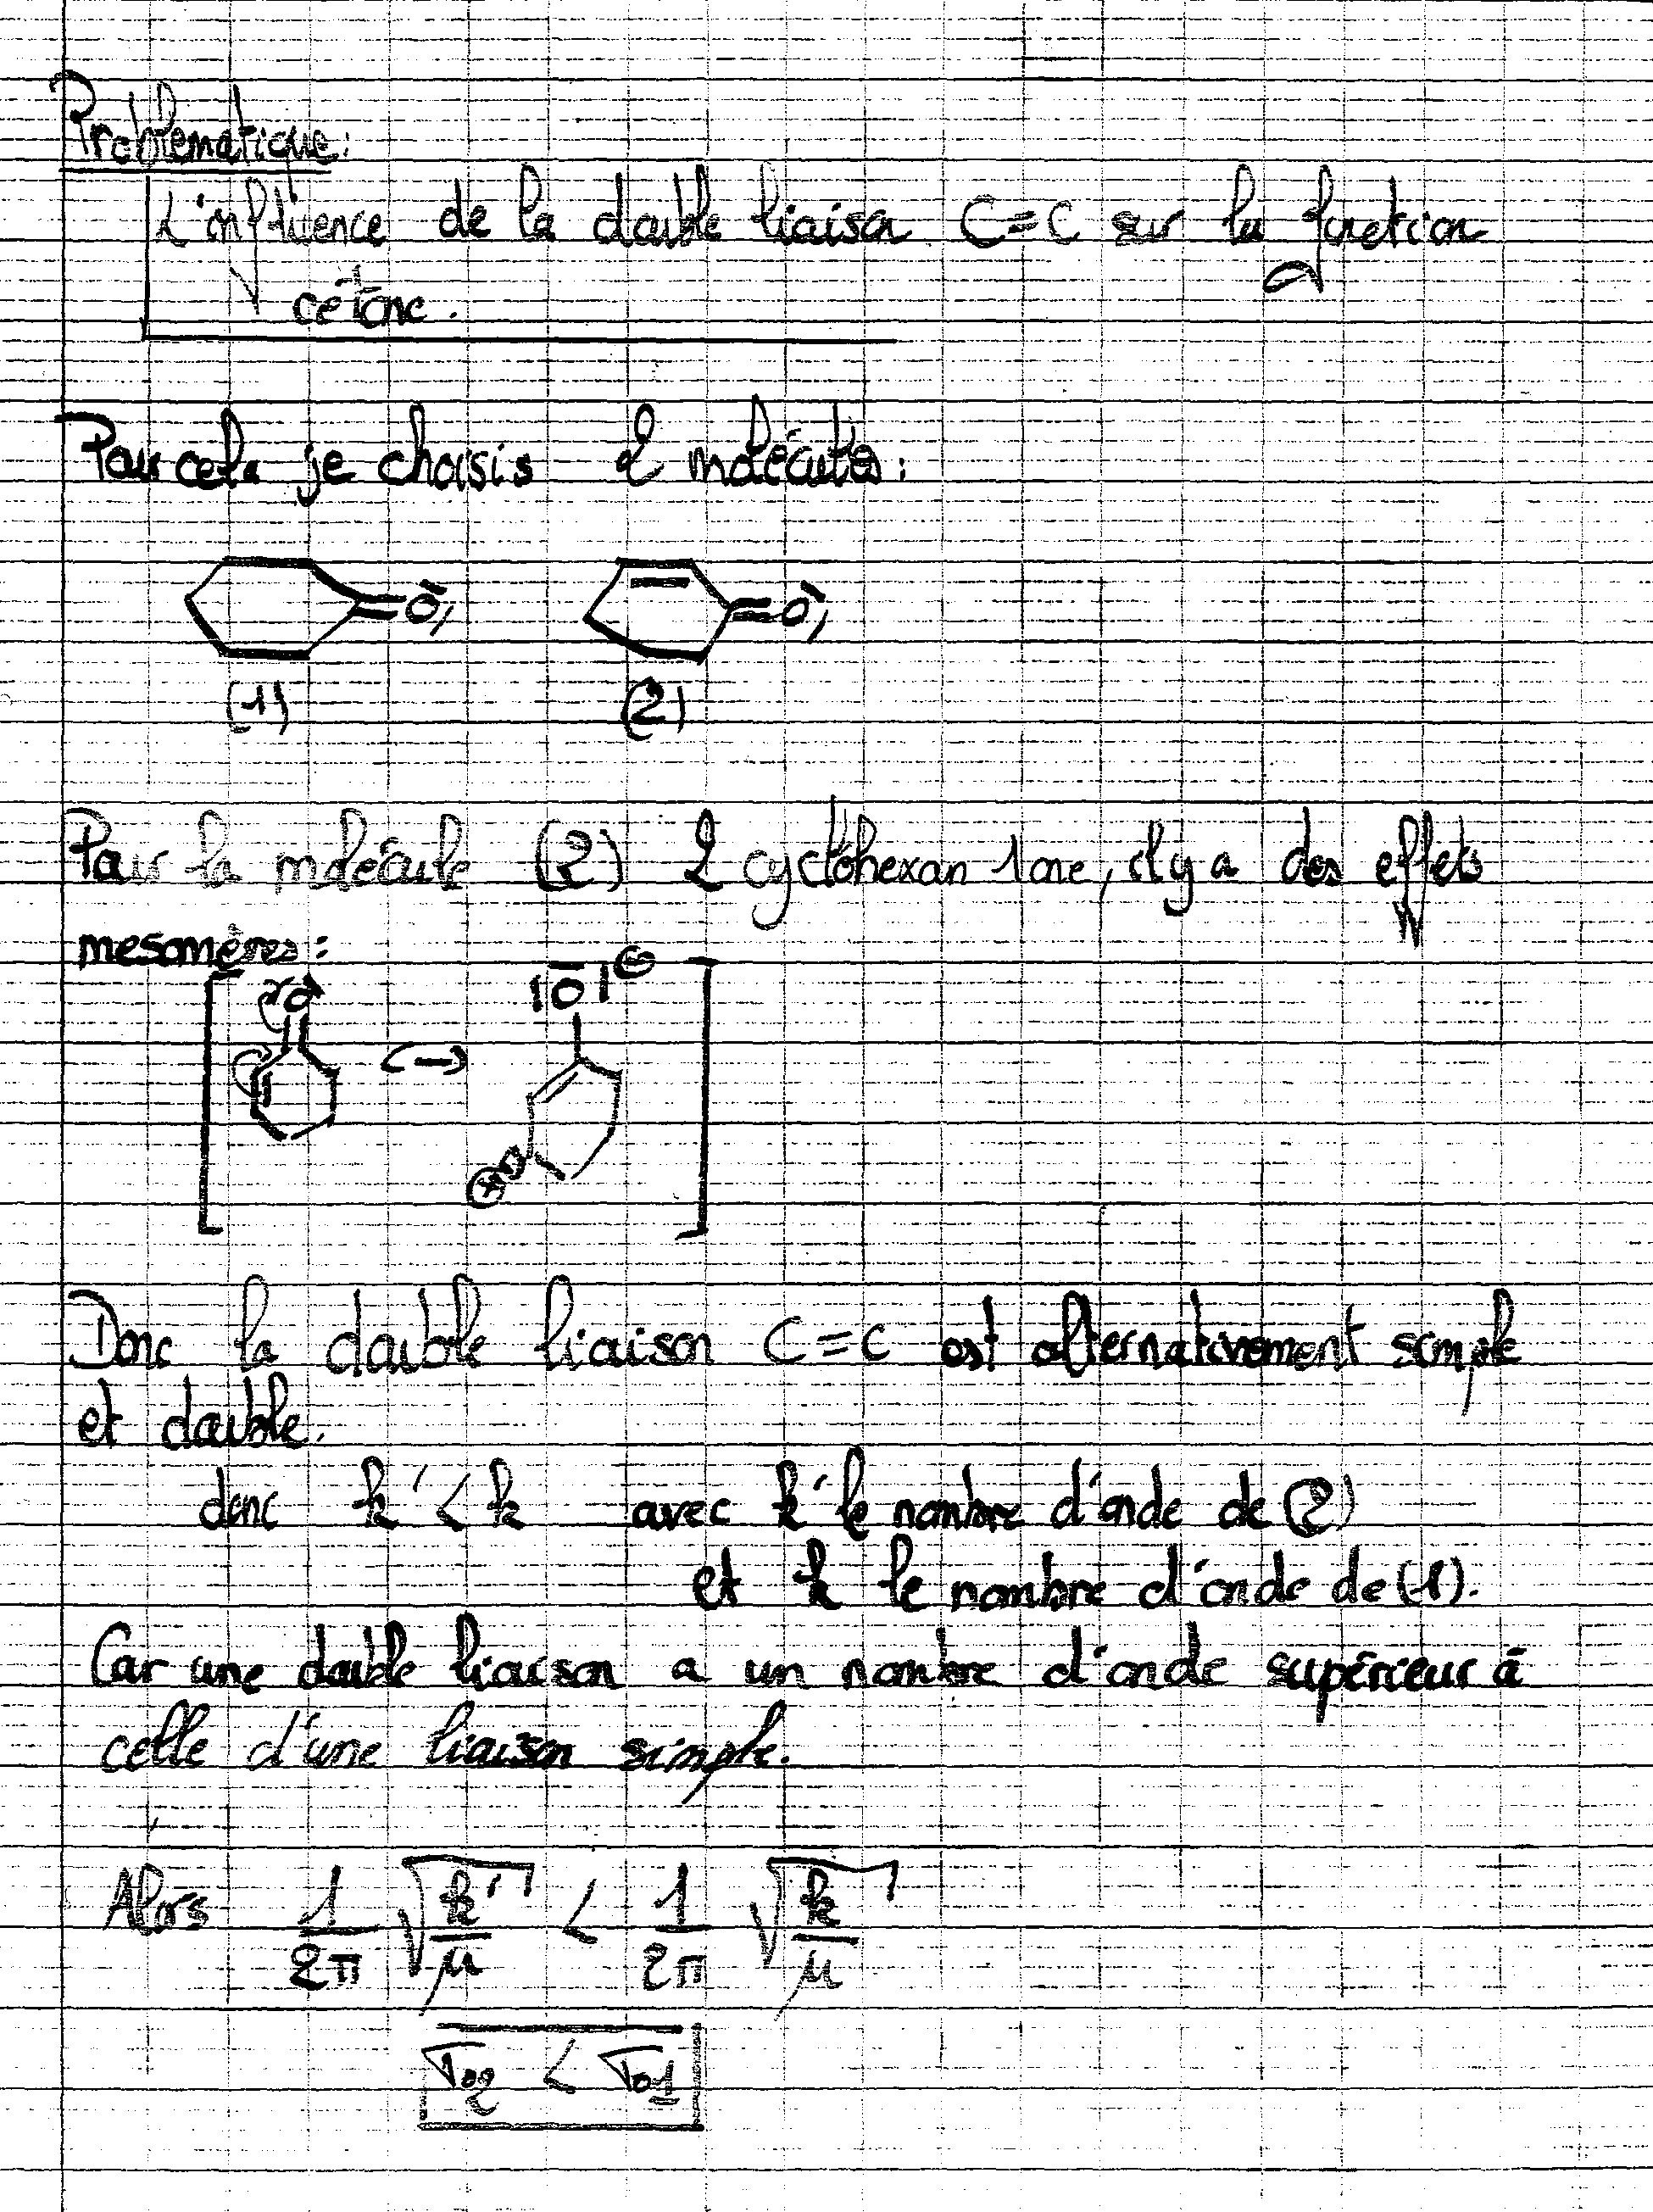 Problématique:
L'influence de la double liaison C=C sur la fonction
cétone.
Pour cela je choisis 2 molécules:
=O =O
(1) (2)
Pour la molécule (2) 2 cyclohexan 1 one, il y a des effets
mesomères:
O ↔ |O|⊖
⊕
Donc la double liaison C=C est alternativement simple
et double.
donc k' < k avec k' le nombre d'onde de (2)
et k le nombre d'onde de (1).
Car une double liaison a un nombre d'onde supérieur à
celle d'une liaison simple.
Alors 1/2π √(k'/μ) < 1/2π √(k/μ)
σ02 < σ01